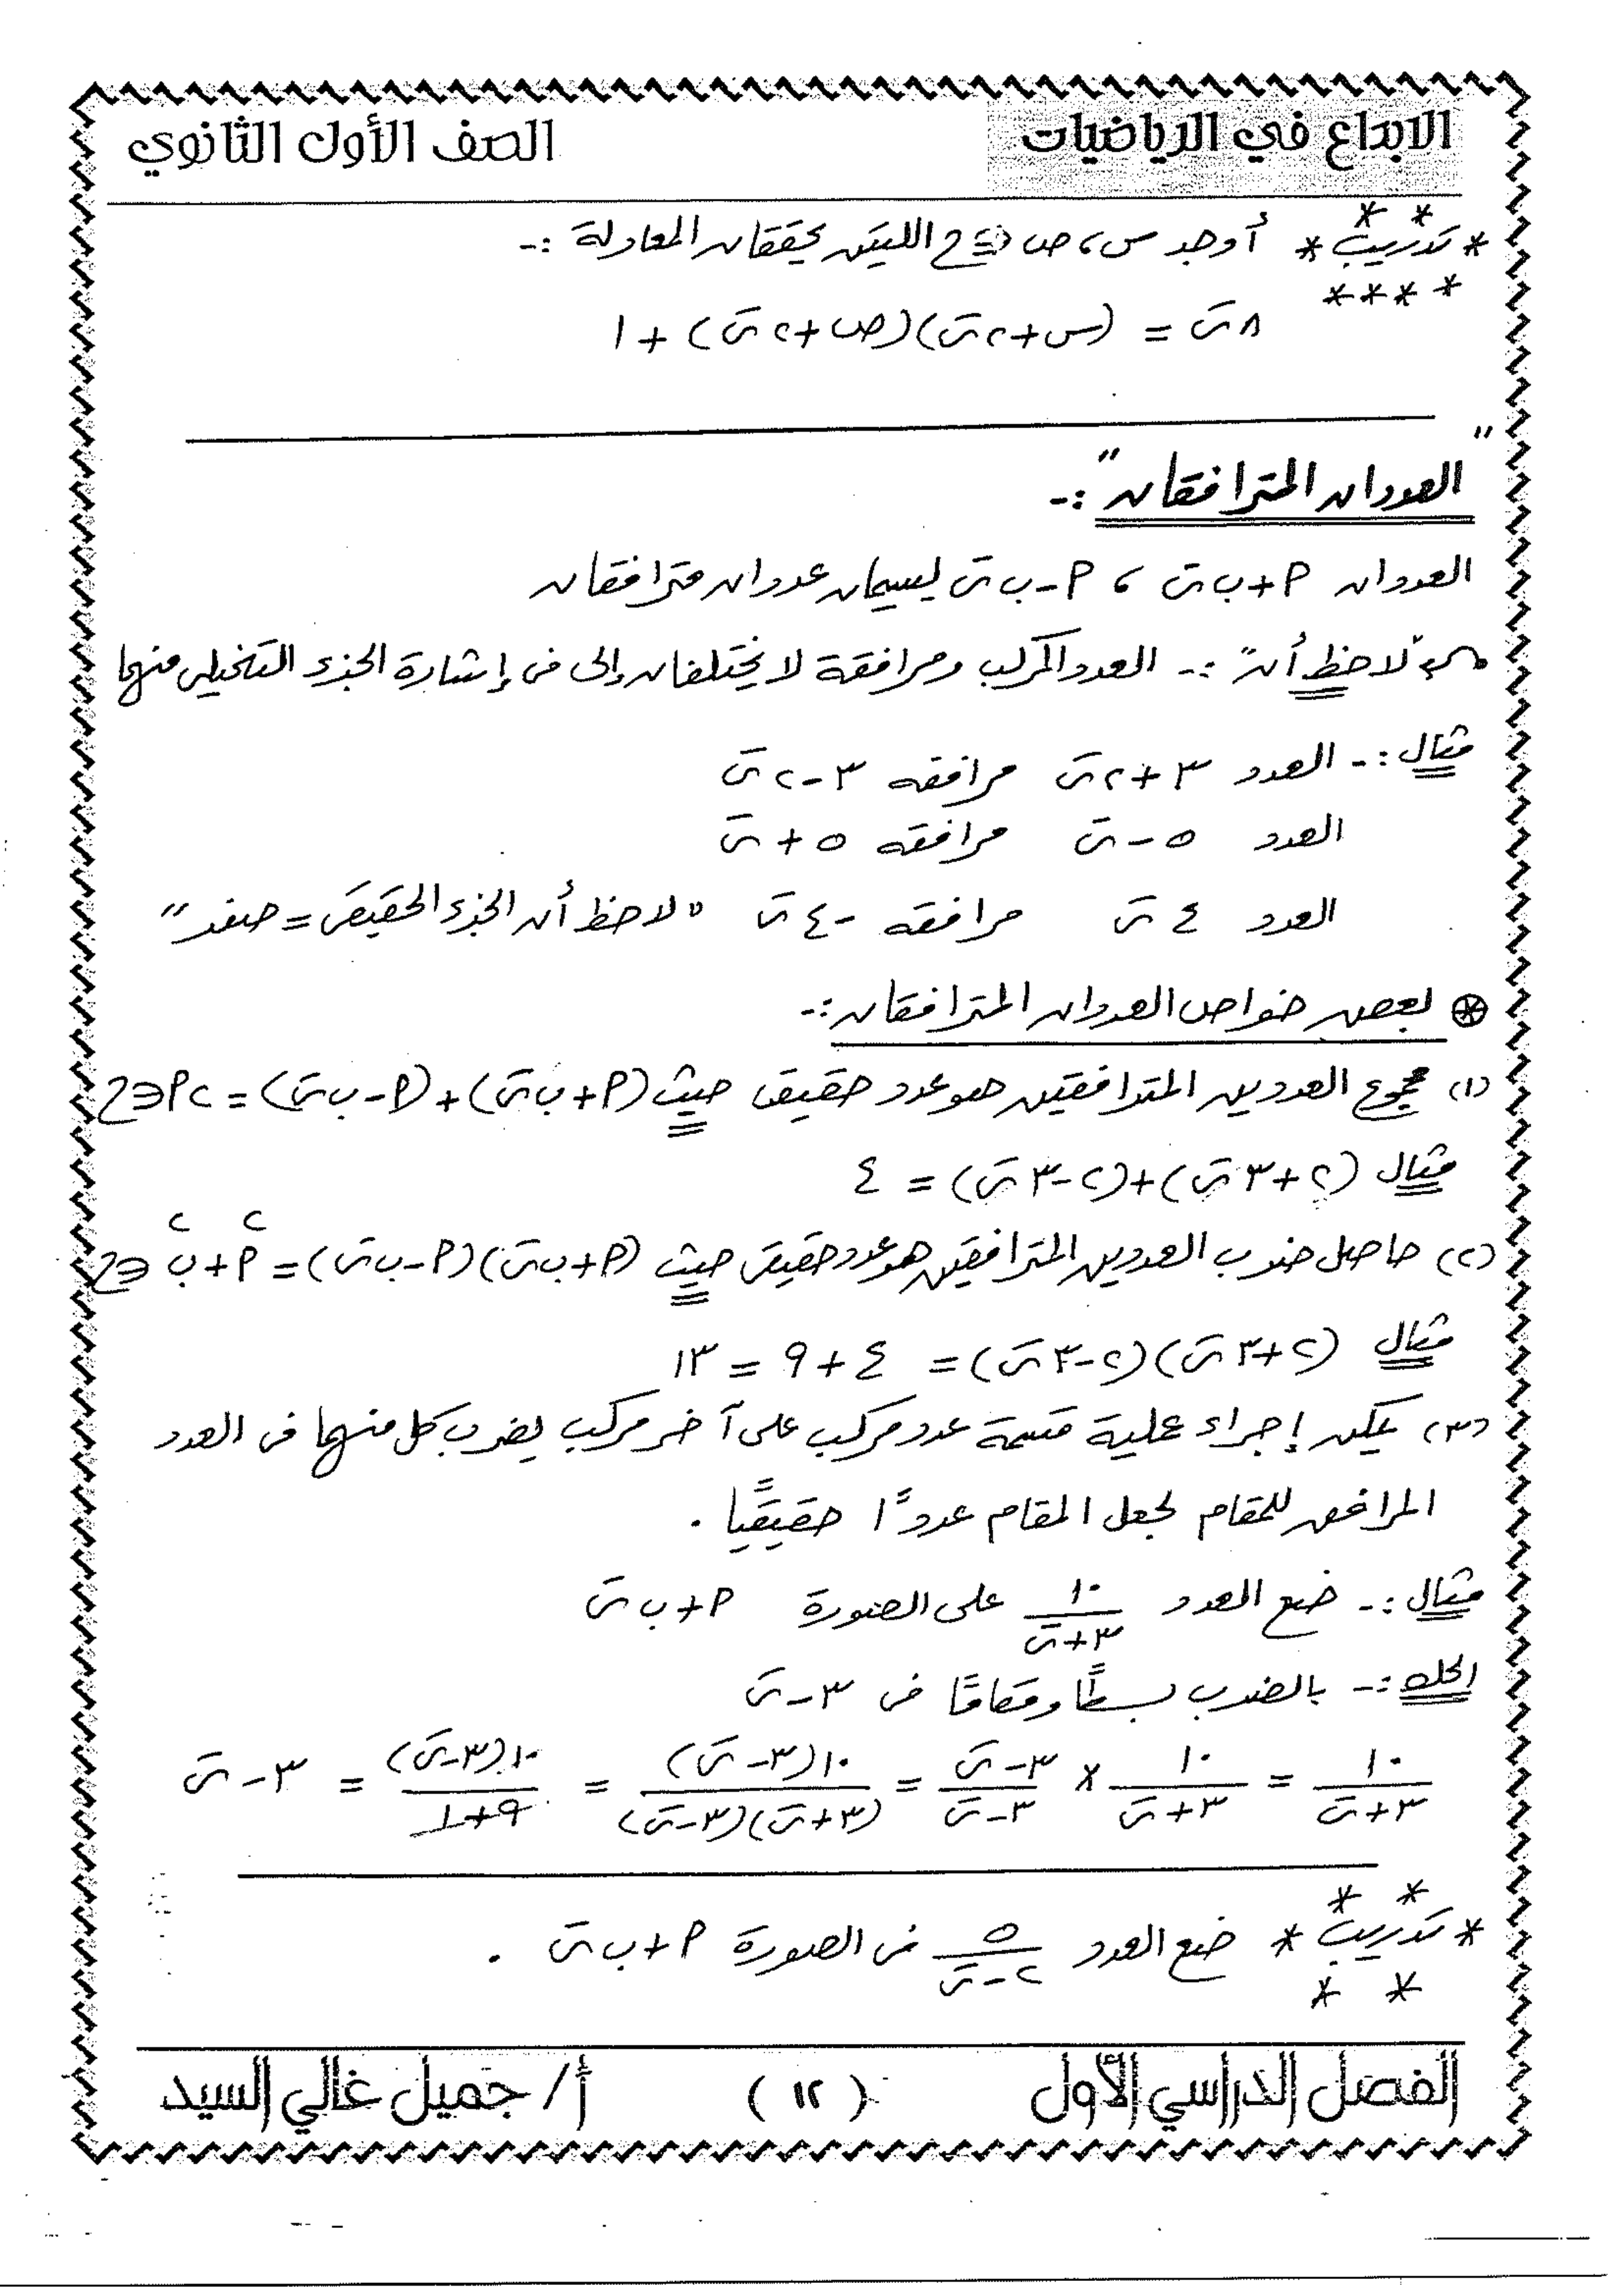 الابداع في الرياضيات
الصف الأول الثانوي
* تدريب * أوجد س ، ص ∈ ح اللتين يحققان المعادلة :-
٨ ت = (س + ٢ ت)(ص + ٢ ت) + ١
" العددان المترافقان " :-
العددان أ + ب ت ، أ - ب ت يسميان عددان مترافقان
" لاحظ أن " :- العدد المركب ومرافقة لا يختلفان إلى فى إشارة الجزء التخيلى منهما
مثال :- العدد ٣ + ٢ ت مرافقه ٣ - ٢ ت
العدد ٥ - ت مرافقه ٥ + ت
العدد ٤ ت مرافقه - ٤ ت " لاحظ أن الجزء الحقيقى = صفر "
⊛ بعض خواص العددان المترافقان :-
(١) مجموع العددين المترافقين هو عدد حقيقى حيث (أ + ب ت) + (أ - ب ت) = ٢أ ∈ ح
مثال (٢ + ٣ ت) + (٢ - ٣ ت) = ٤
(٢) حاصل ضرب العددين المترافقين هو عدد حقيقى حيث (أ + ب ت)(أ - ب ت) = أ² + ب² ∈ ح
مثال (٢ + ٣ ت)(٢ - ٣ ت) = ٤ + ٩ = ١٣
(٣) يمكن إجراء عملية قسمة عدد مركب على آخر مركب يضرب كل منهما فى العدد
المرافق للمقام لجعل المقام عددًا حقيقيًا .
مثال :- ضع العدد ١٠ / (٣ + ت) على الصورة أ + ب ت
الحل :- بالضرب بسطًا ومقامًا فى ٣ - ت
١٠ / (٣ + ت) = ١٠ / (٣ + ت) × (٣ - ت) / (٣ - ت) = ١٠(٣ - ت) / (٣ + ت)(٣ - ت) = ١٠(٣ - ت) / (٩ + ١) = ٣ - ت
* تدريب * ضع العدد ٥ / (٢ - ت) فى الصورة أ + ب ت .
الفصل الدراسي الأول
( ١٢ )
أ / جميل غالي السيد